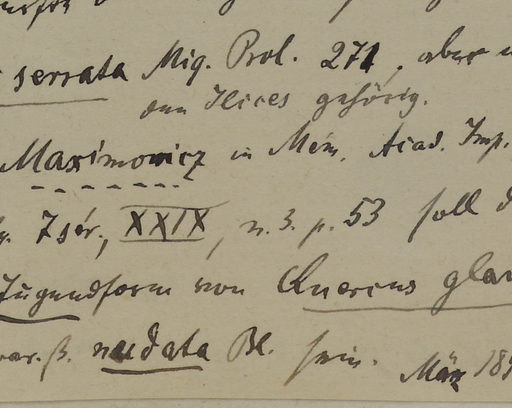 serrata Miq. Prol. 271, aber
den Ilices gehörig.
Maximowicz in Mém. Acad. Imp.
7 sér., XXIX, n. 3. p. 53 soll
Jugendform von Quercus glau
var. β. nudata Bl. sein. März 189